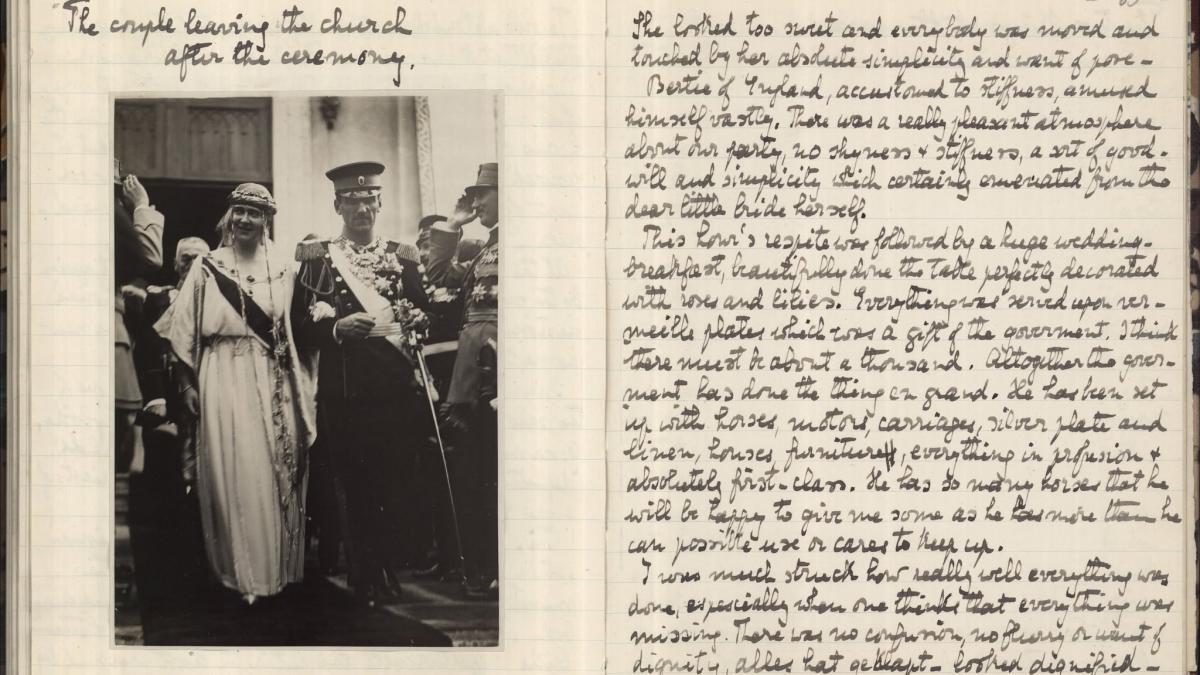 The couple leaving the church
after the ceremony.
She looked too sweet and everybody was moved and
touched by her absolute simplicity and want of pose-
Bertie of England, accustomed to stiffness, amused
himself vastly. There was a really pleasant atmosphere
about our party, no shyness & stiffness, a sort of good-
will and simplicity which certainly emenated from the
dear little bride herself.
This hour's respite was followed by a huge wedding-
breakfast, beautifully done the table perfectly decorated
with roses and lilies. Everything was served upon ver-
meille plates which was a gift of the goverment. I think
there must be about a thousand. Altogether the gover-
ment has done the thing en grand. He has been set
up with horses, motors, carriages, silver plate and
linen, houses, furniture, everything in profusion &
absolutely first-class. He has so many horses that he
will be happy to give me some as he has more than he
can possible use or cares to keep up.
I was much struck how really well everything was
done, especially when one thinks that everything was
missing. There was no confusion, no flurry or want of
dignity, alles hat geklapt - looked dignified -